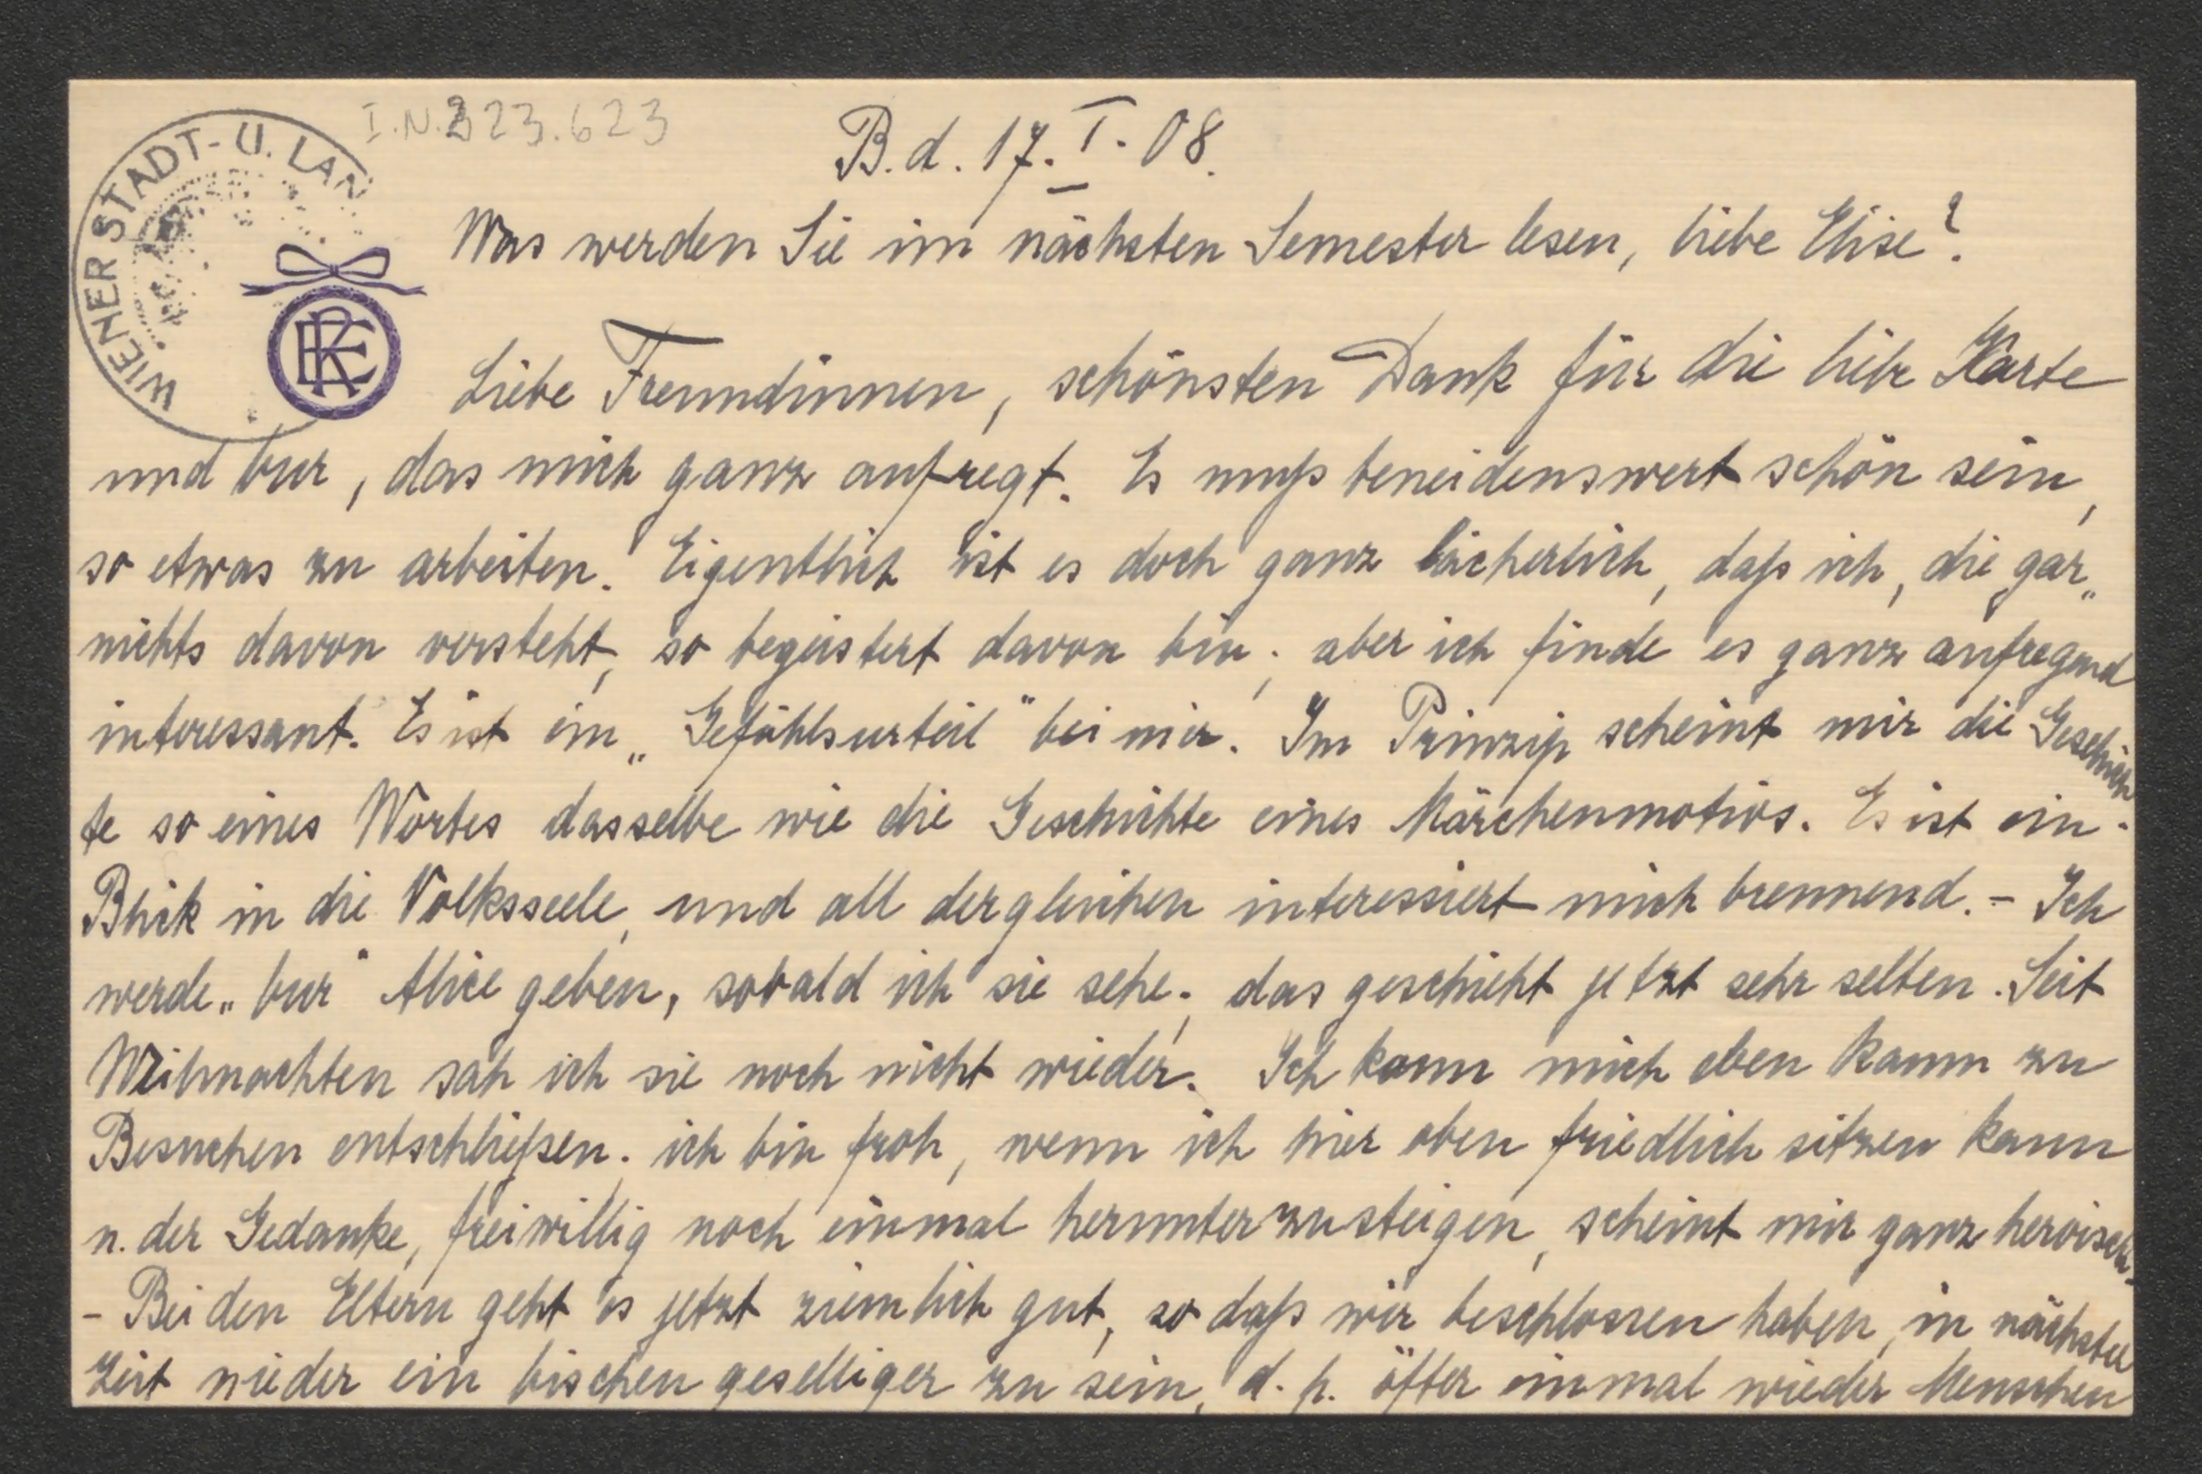 I.N. 223.623
WIENER STADT- U. LAN
B.d. 17. I. 08.
Was werden Sie im nächsten Semester lesen, liebe Elise?
Liebe Freundinnen, schönsten Dank für die liebe Karte
und bur, das mich ganz aufregt. Es muß beneidenswert schön sein,
so etwas zu arbeiten. Eigentlich ist es doch ganz lächerlich, daß ich, die gar„
nichts davon versteht, so begeistert davon bin; aber ich finde es ganz aufregend
interessant. Es ist ein „Gefühlsurteil" bei mir. Im Prinzip scheint mir die Geschich
te so eines Wortes dasselbe wie die Geschichte eines Märchenmotivs. Es ist ein
Blick in die Volksseele, und all dergleichen interessiert mich brennend. - Ich
werde „bur" Alice geben, sobald ich sie sehe; das geschieht jetzt sehr selten. Seit
Weihnachten sah ich sie noch nicht wieder. Ich kann mich eben kaum zu
Besuchen entschließen. ich bin froh, wenn ich hier oben friedlich sitzen kann
u. der Gedanke, freiwillig noch einmal herunterzusteigen, scheint mir ganz heroisch.
- Bei den Eltern geht es jetzt ziemlich gut, so daß wir beschlossen haben, in nächster
Zeit wieder ein bischen geselliger zu sein, d. h. öfter einmal wieder Menschen